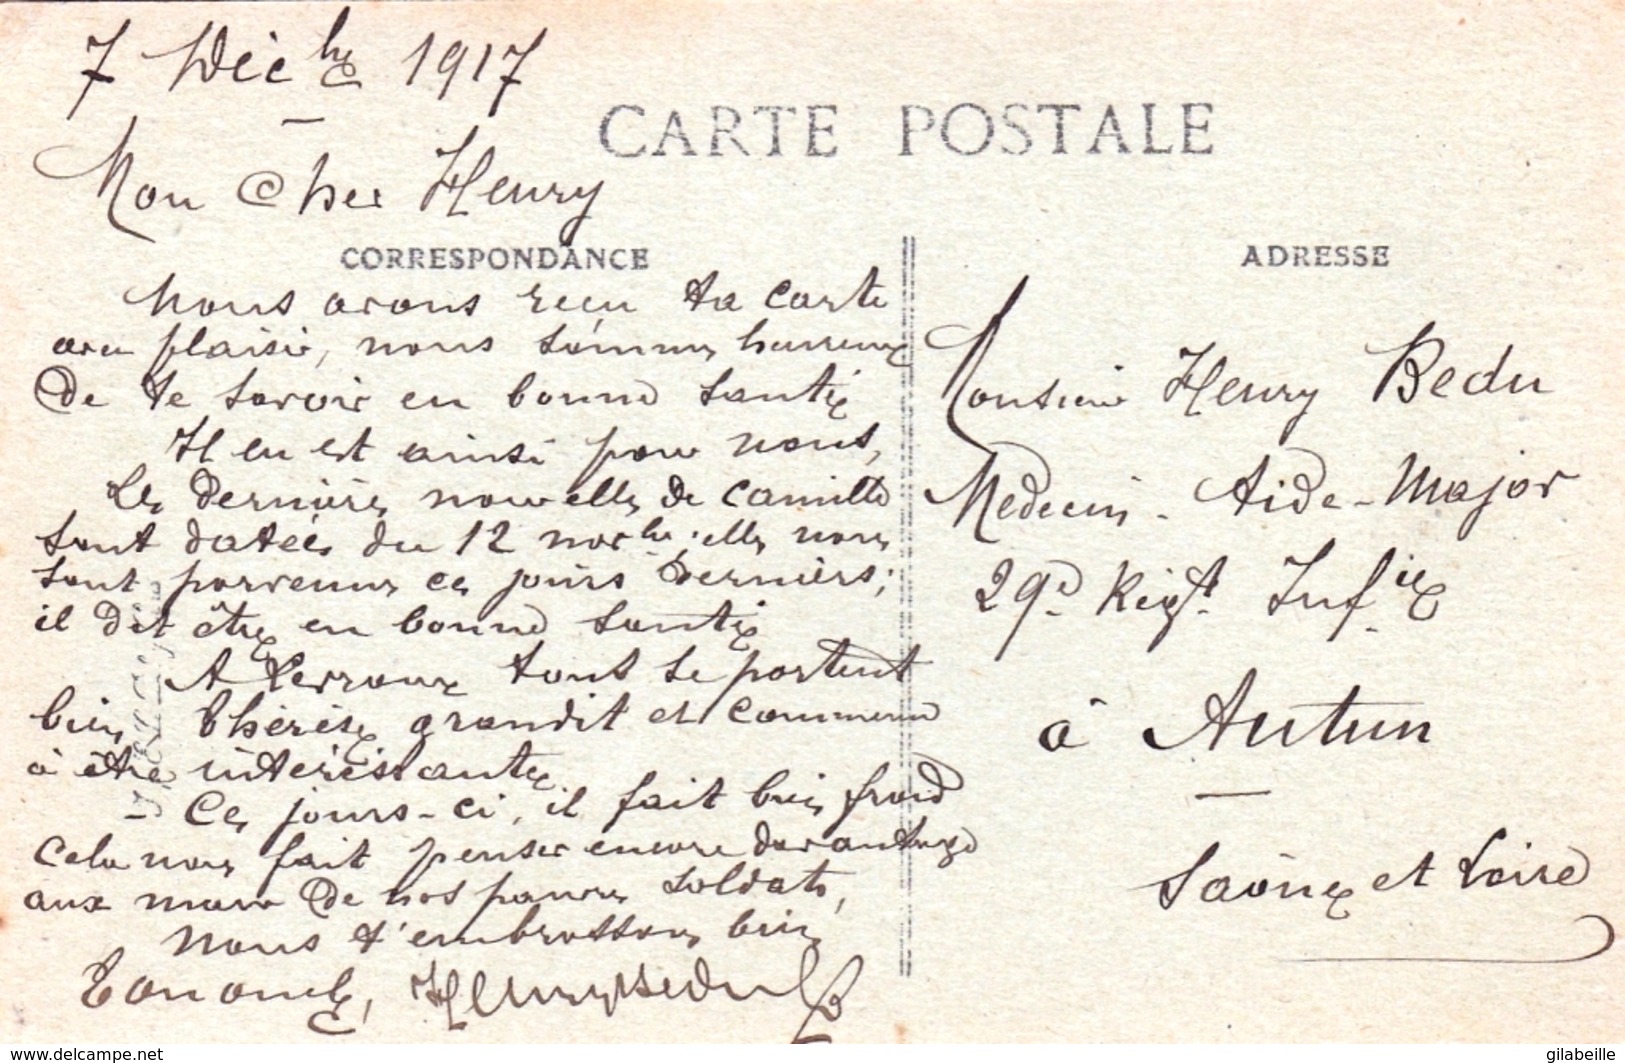 7 Déc bre 1917
CARTE POSTALE
Mon Cher Henry
CORRESPONDANCE
Nous avons reçu ta carte
avec plaisir, nous sommes heureux
de te savoir en bonne santé
Il en est ainsi pour nous,
Les dernières nouvelles de Camille
sont datées du 12 novbre; elles nous
sont parvenues ces jours derniers;
il dit être en bonne santé
A tous se portent
bien, Thérèse grandit et commence
à être intéressante
Ces jours-ci, il fait bien froid
cela nous fait penser encore davantage
aux maux de nos pauvres soldats,
Nous t'embrassons bien
Ton oncle, Henry Bedu
ADRESSE
Monsieur Henry Bedu
Médecin - Aide-Major
29e Régt. Infie
à Autun
Saône et Loire
www.delcampe.net
gilabeille